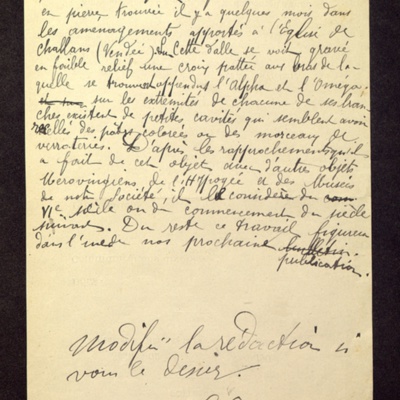 en pierre, trouvée il y a quelques mois dans
les aménagements apportés à l'Eglise de
challans (Vendée). Cette dalle se voit gravé
en faible relief une croix pattée aux bras de la
quelle se trouvent appendus l'alpha et l'oméga,
sur les extremités de chacune de ses bran
ches existent de petites cavités qui semblent avoir
recelé des pâtes colorées ou des morceaux de
verroteries. D'après les rapprochements qu'il
a fait de cet objet avec d'autres objets
Merovingiens de l'Hypogée et des Musées
de notre Société, il le considère du
VIe siècle ou du commencement du siècle
suivant. Du reste ce travail figurera
dans l'une de nos prochaine bulletin
publication.
Modifier la rédaction si
vous le désirez.